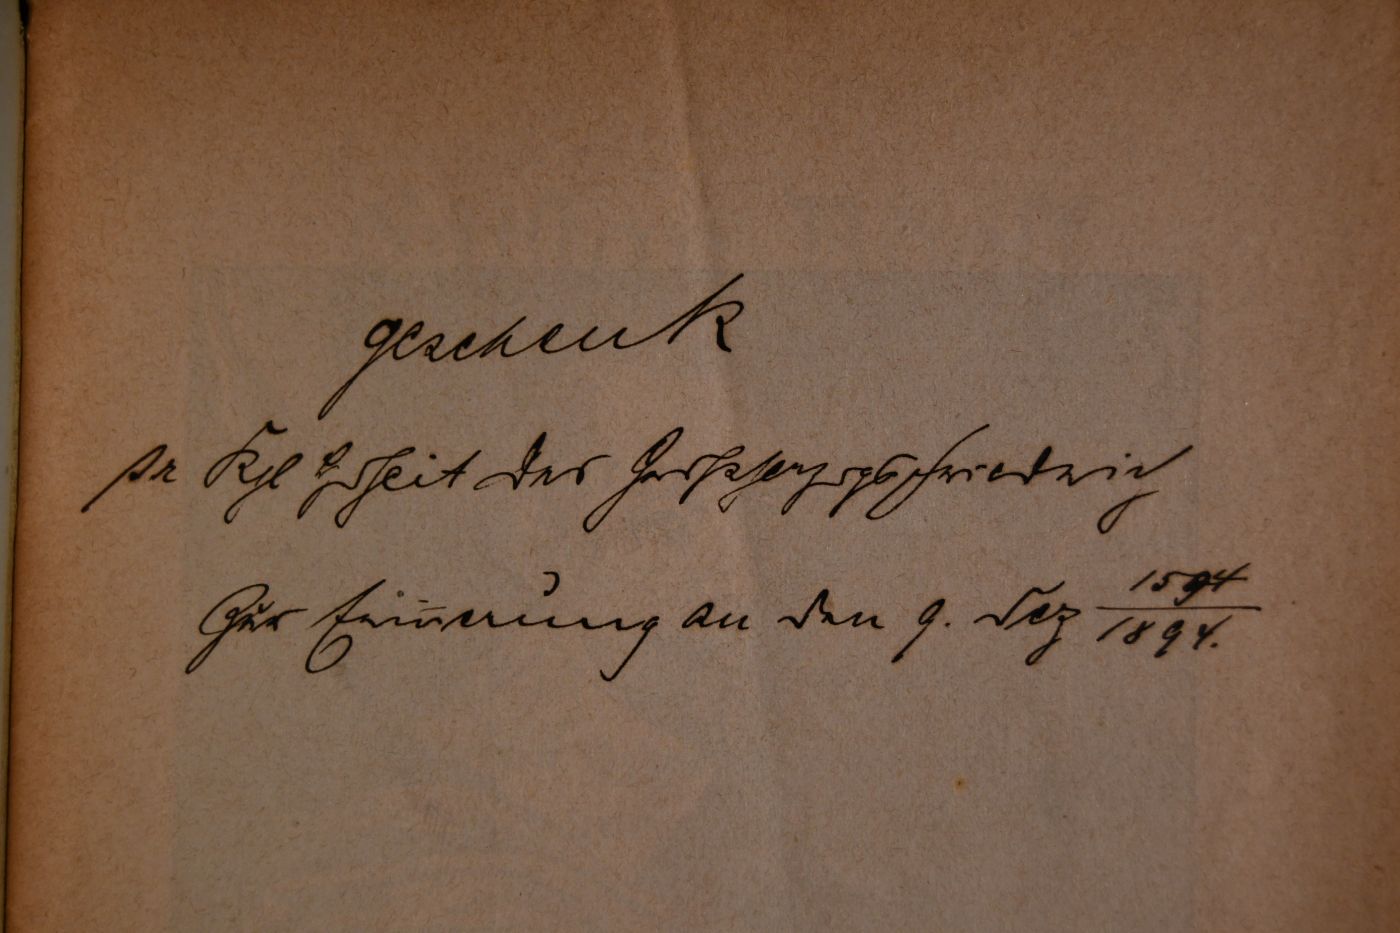 Geschenk
Sr Kgl Hoheit des Großherzogs Friedrich
Zur Erinnerung an den 9. Dez 1594
1894.